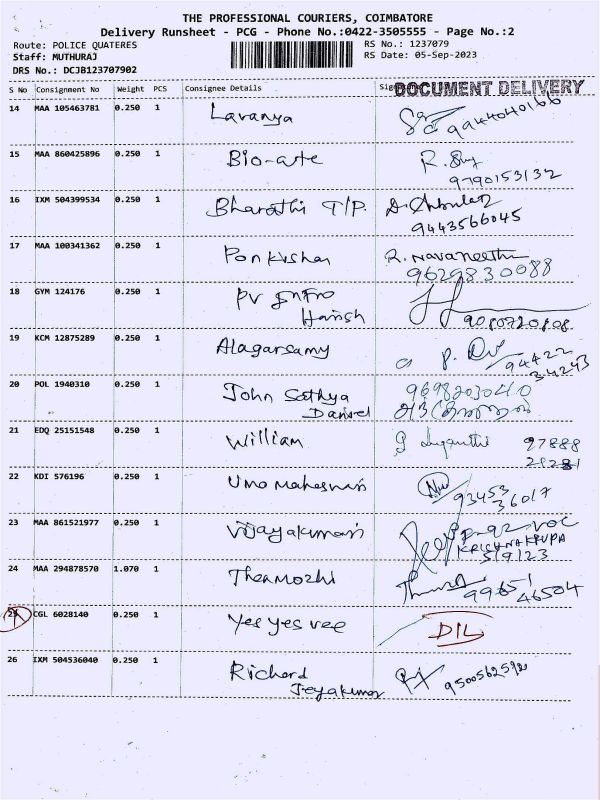 THE PROFESSIONAL COURIERS, COIMBATORE
Delivery Runsheet - PCG - Phone No.:0422-3505555 - Page No.:2
Route: POLICE QUATERES RS No.: 1237079
Staff: MUTHURAJ RS Date: 05-Sep-2023
DRS No.: DCJB123707902
S No Consignment No Weight PCS Consignee Details Sig DOCUMENT DELIVERY
14 MAA 105463781 0.250 1 Lavanya 9944040166
15 MAA 860425896 0.250 1 Bio-arte R.
9790153132
16 IXM 504399534 0.250 1 Bharathi T/P.
9443566045
17 MAA 100341362 0.250 1 Ponkishan R. Navaneeth
9629830088
18 GYM 124176 0.250 1 PV Infro
Harish
19 KCM 12875289 0.250 1 Alagarsamy 94422
34243
20 POL 1940310 0.250 1 John Sathya 9698203040
Daniel
21 EDQ 25151548 0.250 1 William 97888
22 KDI 576196 0.250 1 Uma Maheswari 93453
36017
23 MAA 861521977 0.250 1 Vijayakumari
KRISHNAKRUPA
5/9/23
24 MAA 294878570 1.070 1 Thenmozhi 99651
46504
25 CGL 6028140 0.250 1 Yes yes vee D/L
26 IXM 504536040 0.250 1 Richard 9500562592
Jeyakumar